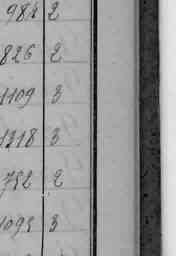 984 2
826 2
1109 3
1318 3
752 2
1093 3